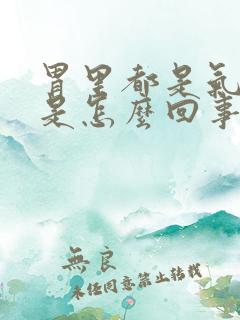 胃里都是氣
是怎麼回事
無良
未經同意禁止轉載